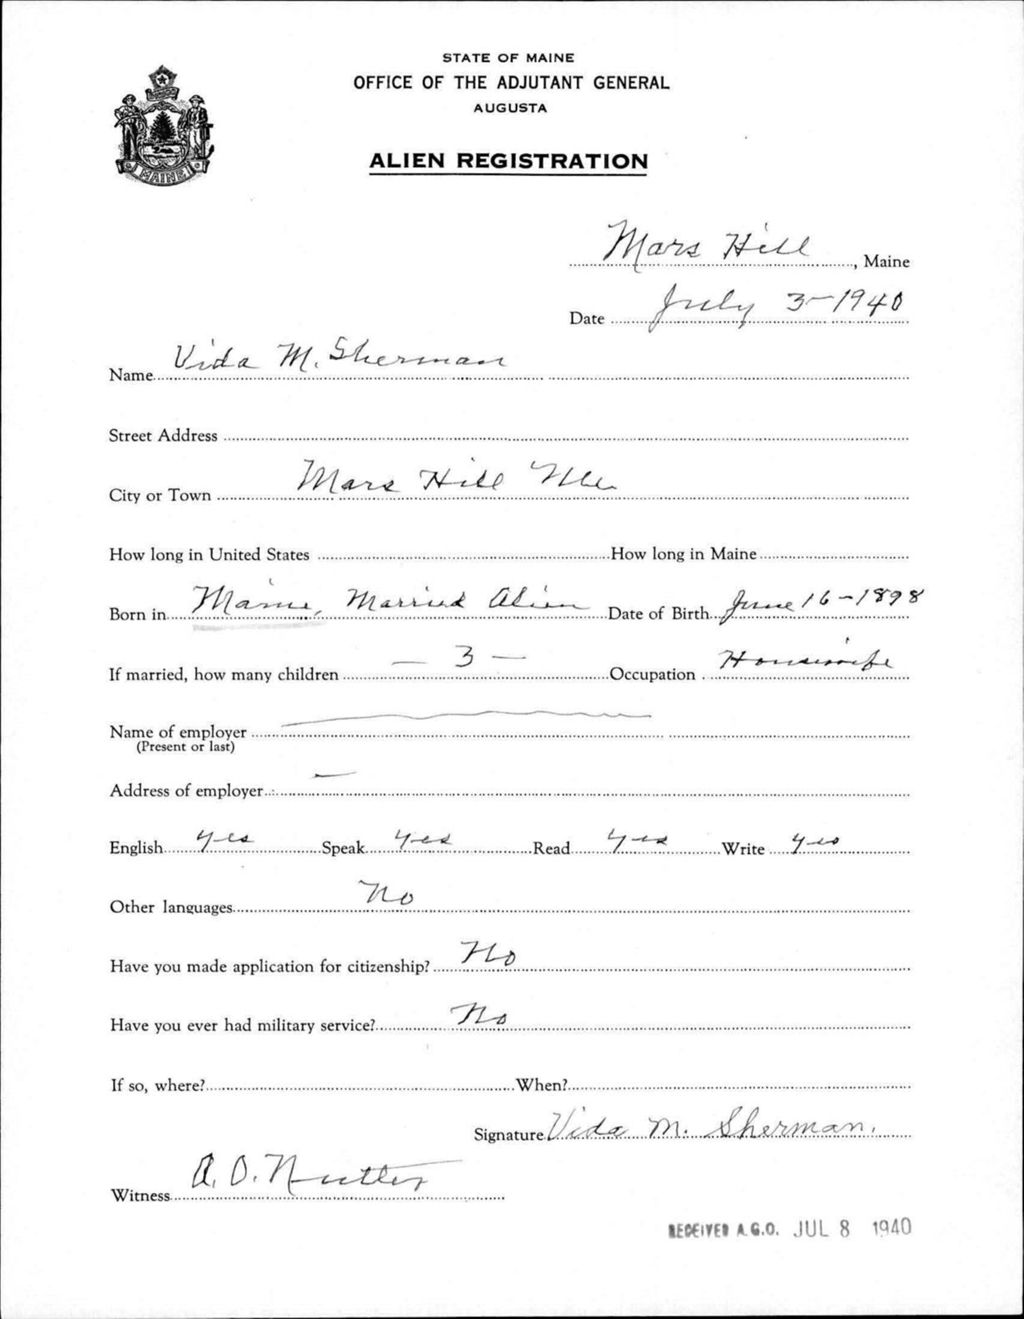 STATE OF MAINE
OFFICE OF THE ADJUTANT GENERAL
AUGUSTA
ALIEN REGISTRATION
MAINE
Mars Hill, Maine
Date July 3-1940
Name Vida M. Sherman
Street Address
City or Town Mars Hill Me.
How long in United States How long in Maine
Born in Maine, Married Alien Date of Birth June 16-1898
If married, how many children - 3 - Occupation Housewife
Name of employer
(Present or last)
Address of employer
English yes Speak yes Read yes Write yes
Other languages No
Have you made application for citizenship? No
Have you ever had military service? No
If so, where? When?
Signature Vida M. Sherman.
Witness A. D. Nutter
RECEIVED A.G.O. JUL 8 1940